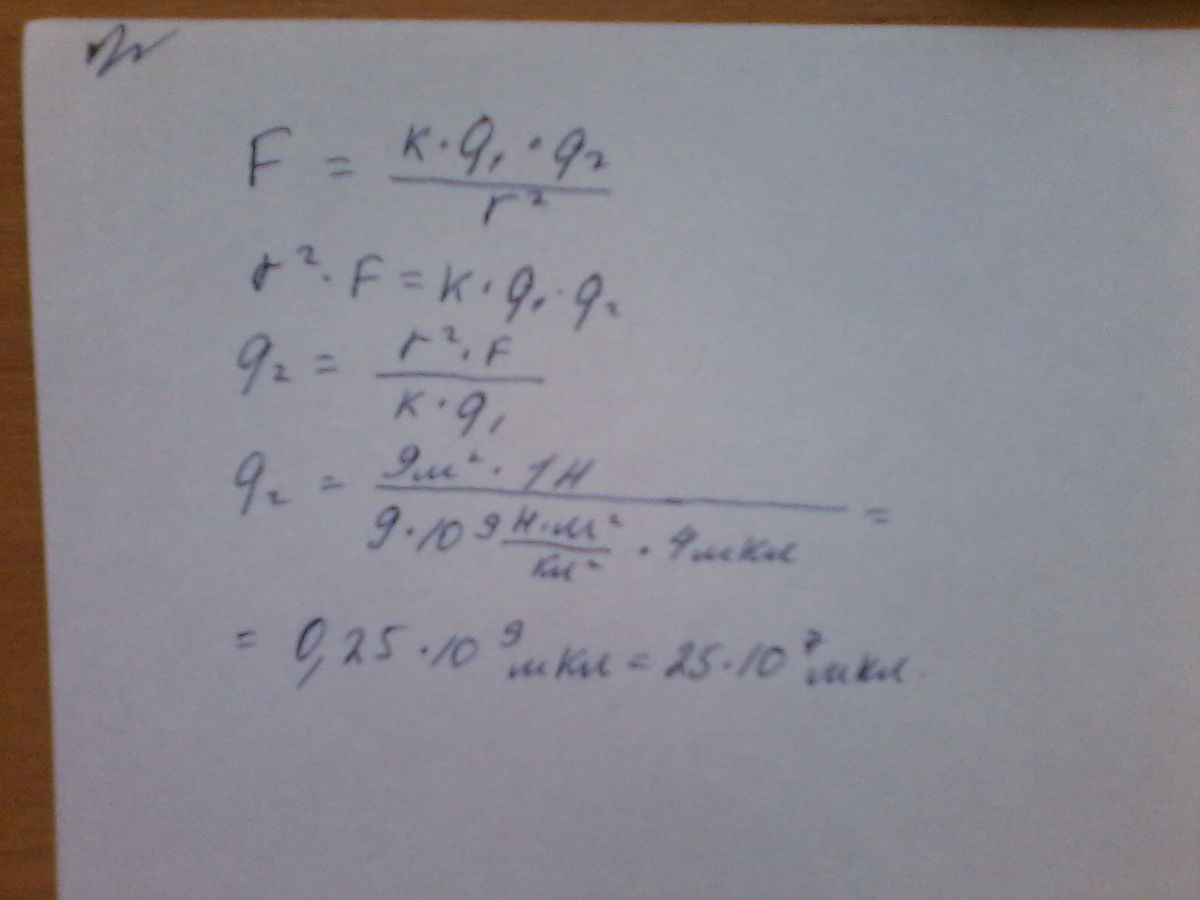 F = к·q₁·q₂ / r²
r²·F = к·q₁·q₂
q₂ = r²·F / к·q₁
q₂ = 9м²·1Н / 9·10⁹ Н·м²/кл² · 4мкл =
= 0,25·10⁹мкл = 25·10⁷мкл.